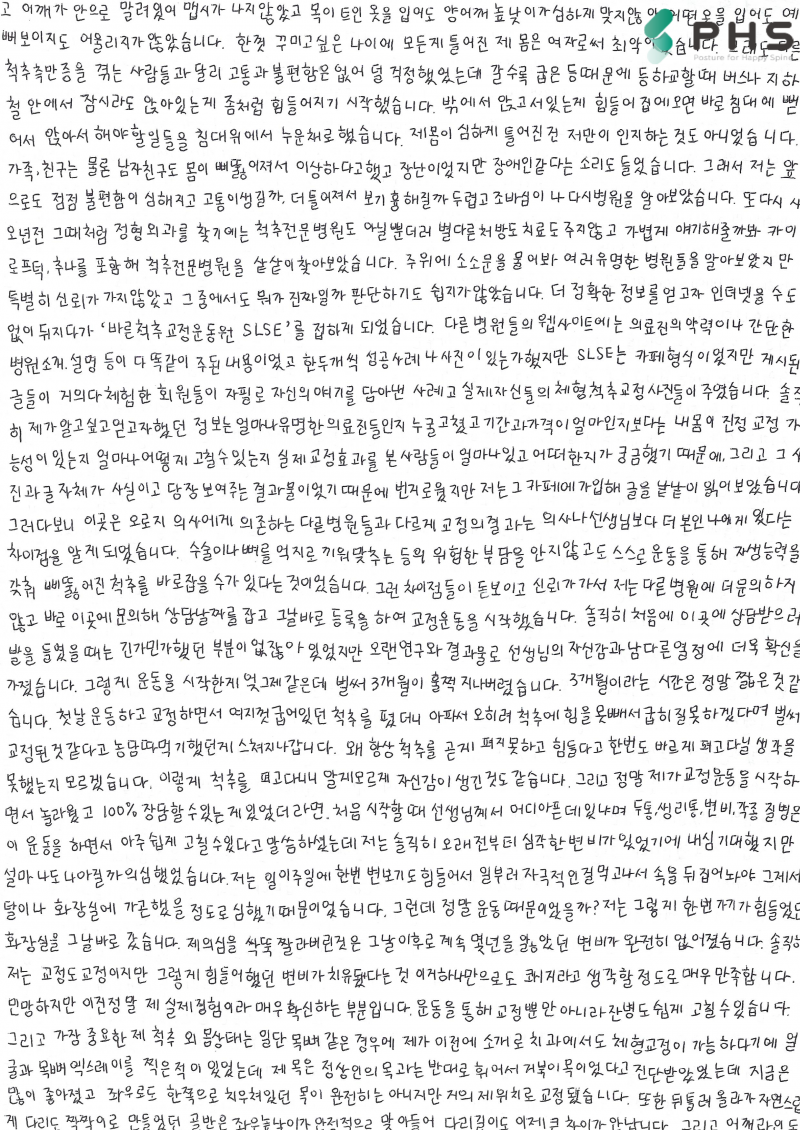 고 어깨가 안으로 말려있어 맵시가 나지않았고 목이 트인 옷을 입어도 양어깨 높낮이가 심하게 맞지않아 어떤 옷을 입어도 예
뻐보이지도 어울리지가 않았습니다. 한껏 꾸미고싶은 나이에 모든게 틀어진 제 몸은 여자로써 최악이었습니다. 그래도 다른
PHS
Posture for Happy Spine
척추측만증을 겪는 사람들과 달리 고통과 불편함은 없어 덜 걱정했었는데 갈수록 굽은 등때문에 등하교할때 버스나 지하
철 안에서 잠시라도 앉아있는게 좀처럼 힘들어지기 시작했습니다. 밖에서 앉고서있는게 힘들어 집에오면 바로 침대에 뻗
어서 앉아서 해야할일들을 침대위에서 누운채로 했습니다. 제몸이 심하게 틀어진건 저만이 인지하는것도 아니었습니다.
가족, 친구는 물론 남자친구도 몸이 삐뚫어져서 이상하다고했고 장난이었지만 장애인같다는 소리도 들었습니다. 그래서 저는 앞
으로도 점점 불편함이 심해지고 고통이생길까, 더 틀어져서 보기 흉해질까 두렵고 조바심이 나 다시병원을 알아보았습니다. 또다시 사
오년전 그때처럼 정형외과를 찾기에는 척추전문병원도 아닐뿐더러 별다른처방도치료도주지않고 가볍게 얘기해줄까봐 카이
로프틱, 추나를 포함해 척추전문병원을 샅샅이찾아보았습니다. 주위에 소소문을 물어봐 여러유명한 병원들을 알아보았지만
특별히 신뢰가 가지않았고 그중에서도 뭐가 진짜일까 판단하기도 쉽지가않았습니다. 더 정확한 정보를얻고자 인터넷을 수도
없이 뒤지다가 '바른척추교정운동원 SLSE'를 접하게 되었습니다. 다른 병원들의 웹사이트에는 의료진의 약력이나 간단한
병원소개, 설명 등이 다 똑같이 주된 내용이었고 한두개씩 성공사례 나 사진이 있는가했지만 SLSE는 카페형식이었지만 게시된
글들이 거의다 체험한 회원들이 자필로 자신의 얘기를 담아낸 사례고 실제자신들의 체형척추교정사진들이 주였습니다. 솔직
히 제가 알고싶고얻고자했던 정보는 얼마나유명한 의료진들인지 누굴고쳤고 기간과가격이 얼마인지보다는 내 몸이 진정 교정 가
능성이 있는지 얼마나어떻게 고칠수있는지 실제 교정효과를 본 사람들이 얼마나있고 어떠한지가 궁금했기 때문에, 그리고 그 사
진과 글자체가 사실이고 당장 보여주는 결과물이었기 때문에 번거로웠지만 저는 그 카페에가입해 글을 낱낱이 읽어보았습니다
그러다보니 이곳은 오로지 의사에게 의존하는 다른 병원들과 다르게 교정의결과는 의사나선생님보다 더 본인 나에게 있다는
차이점을 알게 되었습니다. 수술이나 뼈를 억지로 끼워맞추는 등의 위험한 부담을 안지않고도 스스로운동을 통해 자생능력을
갖춰 삐뚫어진 척추를 바로잡을 수가 있다는 것이었습니다. 그런 차이점들이 돋보이고 신뢰가 가서 저는 다른 병원에 더문의하지
않고 바로 이곳에 문의해 상담날짜를 잡고 그날바로 등록을 하여 교정운동을 시작했습니다. 솔직히 처음에 이곳에 상담받으러
발을 들였을 때는 긴가민가했던 부분이 없잖아 있었지만 오랜연구와 결과물로 선생님의 자신감과남다른 열정에 더욱 확신을
가졌습니다. 그렇게 운동을 시작한게 엊그제 같은데 벌써 3개월이 훌쩍 지나버렸습니다. 3개월이라는 시간은 정말 짧은것 같
습니다. 첫날 운동하고 교정하면서 여지껏 굽어있던 척추를 폈더니 아파서 오히려 척추에 힘을 못빼서 굽히질못하겠다며 벌써
교정된것같다고 농담따먹기했던게 스쳐지나갑니다. 왜 항상 척추를 곧게 펴지못하고 힘들다고 한번도 바르게 펴고다닐 생각을
못했는지 모르겠습니다. 이렇게 척추를 펴고다니니 알게모르게 자신감이 생긴것도 같습니다. 그리고 정말 제가 교정운동을 시작하
면서 놀라웠고 100% 장담할수있는게 있었더라면, 처음 시작할때 선생님께서 어디아픈데있냐며 두통, 생리통, 변비, 각종 질병은
이 운동을 하면서 아주 쉽게 고칠수있다고 말씀하셨는데 저는 솔직히 오래전부터 심각한 변비가 있었기에 내심 기대했지만
설마 나도 나아질까 의심했었습니다. 저는 일이주일에 한번 변보기도 힘들어서 일부러 자극적인걸 먹고나서 속을 뒤집어놔야 그제서
탈이나 화장실에 가곤했을 정도로 심했기때문이었습니다. 그런데 정말 운동때문이었을까? 저는 그렇게 한번가기가 힘들었던
화장실을 그날바로 갔습니다. 제의심을 싹뚝 짤라버린것은 그날이후로 계속 몇년을 앓았던 변비가 완전히 없어졌습니다. 솔직히
저는 교정도교정이지만 그렇게 힘들어했던 변비가 치유됐다는 것 이거하나만으로도 쾌거라고 생각할정도로 매우 만족합니다.
민망하지만 이건정말 제 실제경험이라 매우확신하는 부분입니다. 운동을 통해 교정뿐만 아니라잔병도 쉽게 고칠수있습니다.
그리고 가장 중요한 제 척추 외 몸상태는 일단 목뼈 같은 경우에 제가 이전에 소개로 치과에서도 체형교정이 가능하다기에 얼
굴과 목뼈 엑스레이를 찍은적이 있었는데 제 목은 정상인의 목과는 반대로 휘어서 거북이목이었다고 진단받았었는데 지금은
많이 좋아졌고 좌우로도 한쪽으로 치우쳐있던 목이 완전히는 아니지만 거의 제위치로 교정됐습니다. 또한 뒤틀려 올라가 자연스럽
게 다리도 짝짝이로 만들었던 골반은 좌우높낮이가 안정적으로 맞아들어 다리길이도 이제 큰 차이가 안납니다. 그리고 어깨라인도